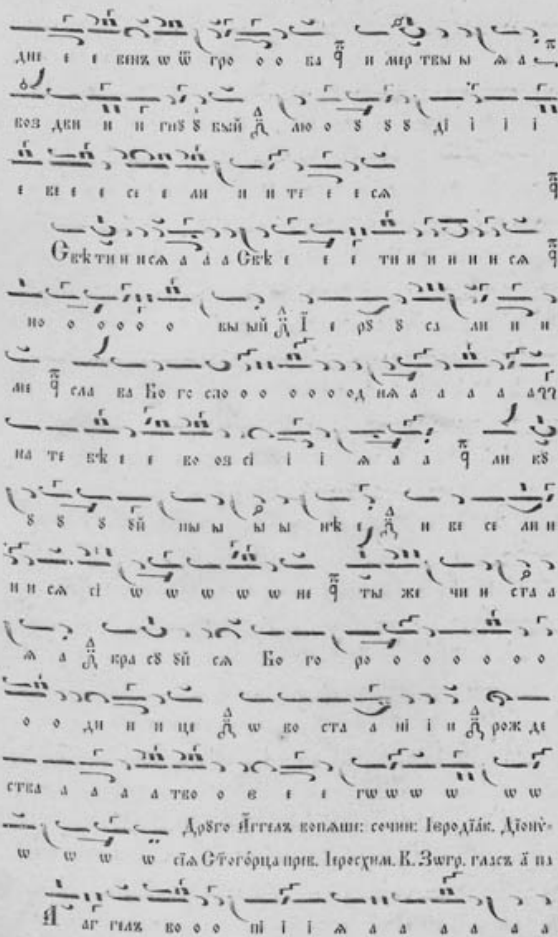 дне е е венъ ѡ ѿ гро о о ба и мер твы ы ѧ а
воз дви и и гнꙋ ꙋ вый лю о ꙋ ꙋ ꙋ ді і і і
е ве е е се е ли и и те е е сѧ
Свѣ ти и и сѧ а а а Свѣ е е е ти и и и и и сѧ
но о о о о о вы ый Ї е рꙋ ꙋ са ли и и
ме сла ва Бо го сло о о о о о од нѧ а а а а а
на те бѣ е е во оз сі і і і ѧ а а ли кꙋ
ꙋ ꙋ ꙋ ꙋй ны ы ы ы нѣ е и ве се ли и
и и сѧ сі ѡ ѡ ѡ ѡ ѡ не ты же чи и ста а
ѧ а кра сꙋ ꙋй сѧ Бо го ро о о о о о о
о о ди и и це ѡ во ста а ні і и рож де
ства а а а а тво о е е е гѡ ѡ ѡ ѡ ѡ ѡ
Дрꙋго А҆ггелъ вопїѧше: сочин: Іеродїак. Дїонꙋ-
ѡ ѡ ѡ ѡ сїѧ Ст҃ого́рца прев. Іеросхим. К. Зѡгр. гласъ а҃ па
А҆ аг гелъ во о о пі і і ѧ а а а а а а